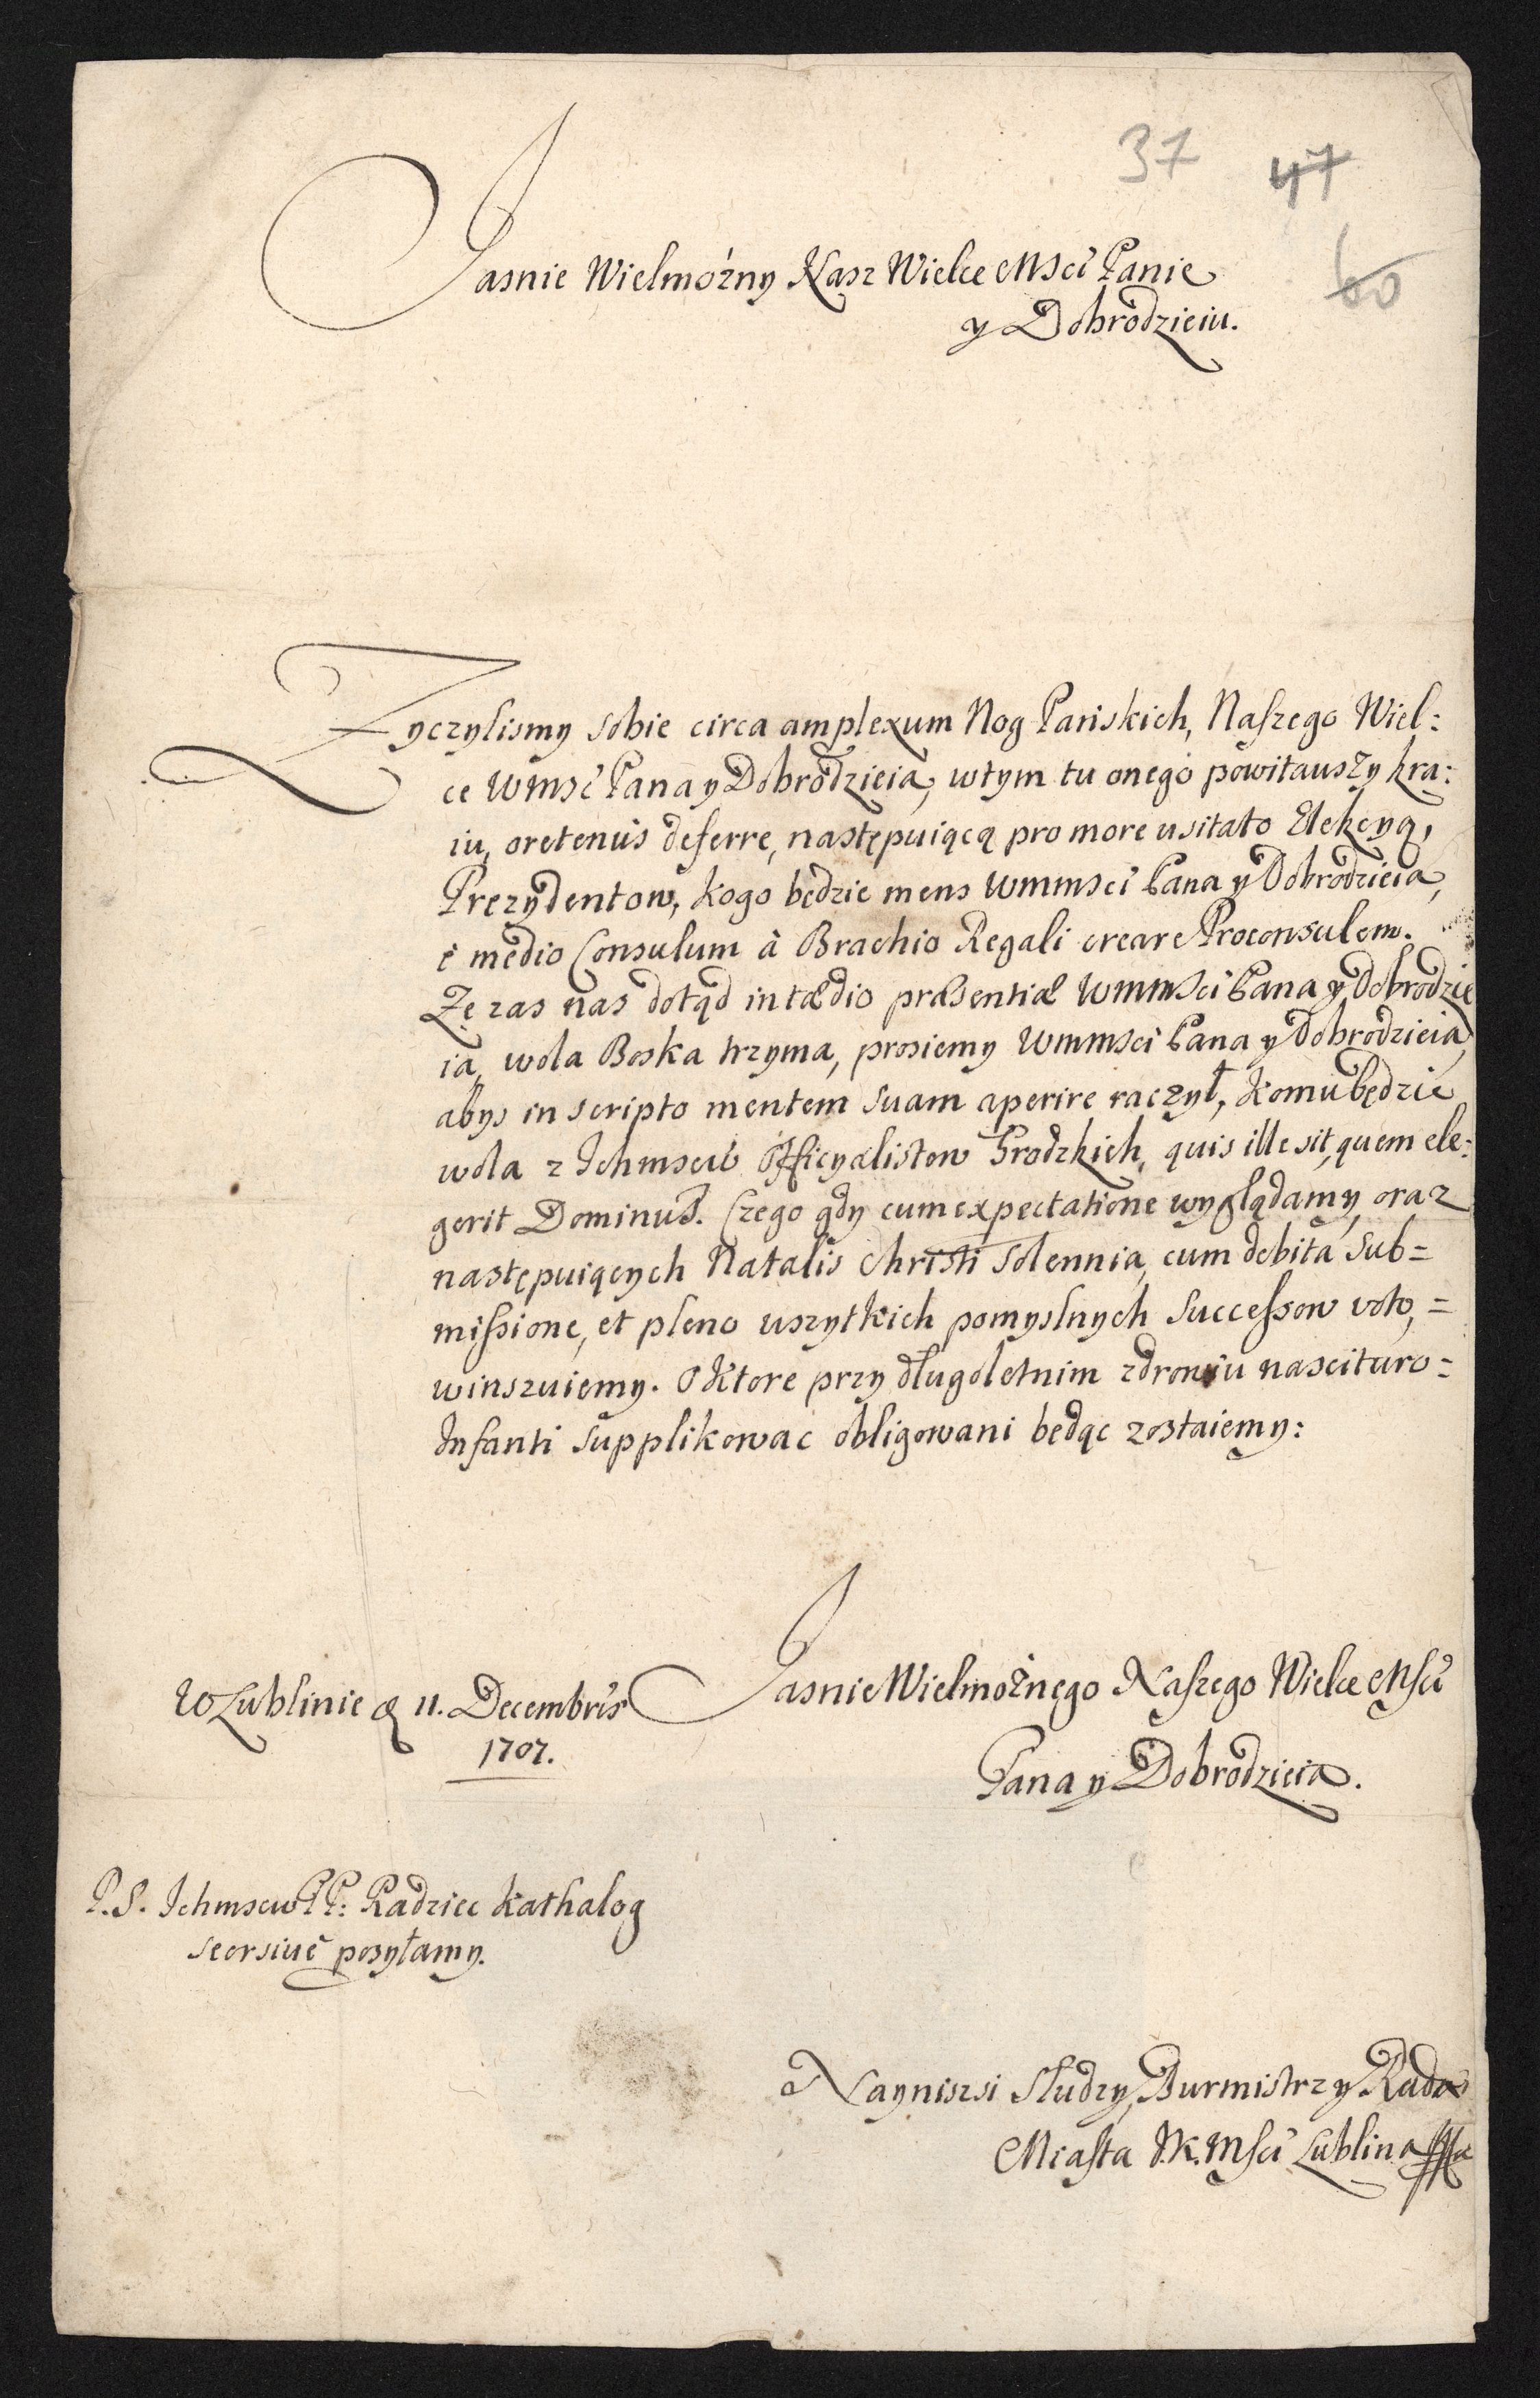 37 47
60
Jasnie Wielmożny Nasz Wielce Mści Panie
y Dobrodzieiu.
Zyczylismy sobie circa amplexum Nog Pańskich, Naszego Wiel:
ce WMści Pana y Dobrodzieia, wtym tu onego powitauszy kra:
iu, oretenus deferre, następuiącą pro more usitato Elekcyą,
Prezydentow, kogo będzie mens WMMści Pana y Dobrodzieia,
è medio Consulum à Brachio Regali creare Proconsulem.
Ze zas nas dotąd in tædio præsentiæ WMMści Pana y Dobrodzie
ia, wola Boska trzyma, prosiemy WMMści Pana y Dobrodzieia,
abys in scripto mentem suam aperire raczył, komu będzie
wola z Ichmsciów Officyalistow Grodzkich, quis ille sit, quem ele:
gerit Dominus. Czego gdy cum expectatione wyglądamy, oraz
następuiących Natalis Christi solennia, cum debita sub=
missione, et pleno uszytkich pomyslnych successow voto, =
winszuiemy. O ktore przy długoletnim zdrowiu nascituro=
Infanti supplikowac obligowani będąc zostaiemy:
W Lublinie d 11. Decembris
1707.
Jasnie Wielmożnego Naszego Wielce Mści
Pana y Dobrodzieia.
P.S. Ichmscw PP: Radziec kathalog
seorsivè posyłamy.
Nayniszsi Słudzy, Burmistrz y Rada
Miasta J.K.Mści Lublina